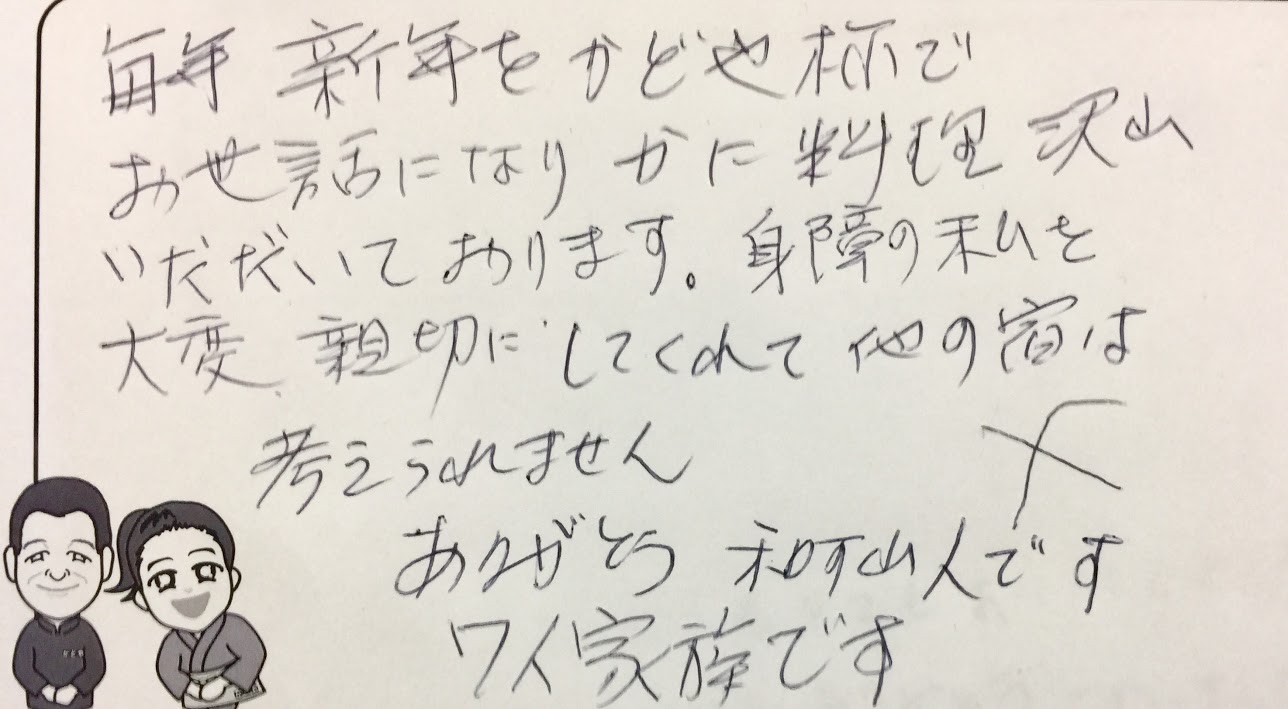 毎年 新年を かどや様で
お世話になり かに 料理 沢山
いただいて おります。身障の私を
大変 親切に してくれて 他の宿は
考えられません
ありがとう 和歌山人です
ワイ家族です